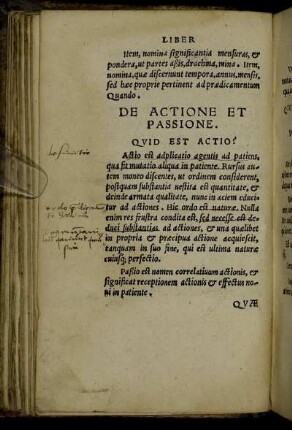 LIBER
Item, nomina significantia mensuras, &
pondera, ut partes aßis, drachma, mina. Item,
nomina, quæ discernunt tempora, annus, mensis,
sed hæc proprie pertinent ad prædicamentum
Quando.
DE ACTIONE ET
PASSIONE.
QVID EST ACTIO?
Actio est adplicatio agentis ad patiens,
qua fit mutatio aliqua in patiente. Rursus au
tem moneo discentes, ut ordinem considerent,
postquam substantia uestita est quantitate, &
deinde armata qualitate, nunc in aciem educi
tur ad actiones. Hic ordo est naturæ. Nulla
enim res frustra condita est, sed necesse est de
duci substantias ad actiones, & una quælibet
in propria & præcipua actione acquiescit,
tanquam in suo fine, qui est ultima naturæ
cuiusq; perfectio.
Passio est nomen correlatiuum actionis, &
significat receptionem actionis & effectus no
ui in patiente.
QVÆ